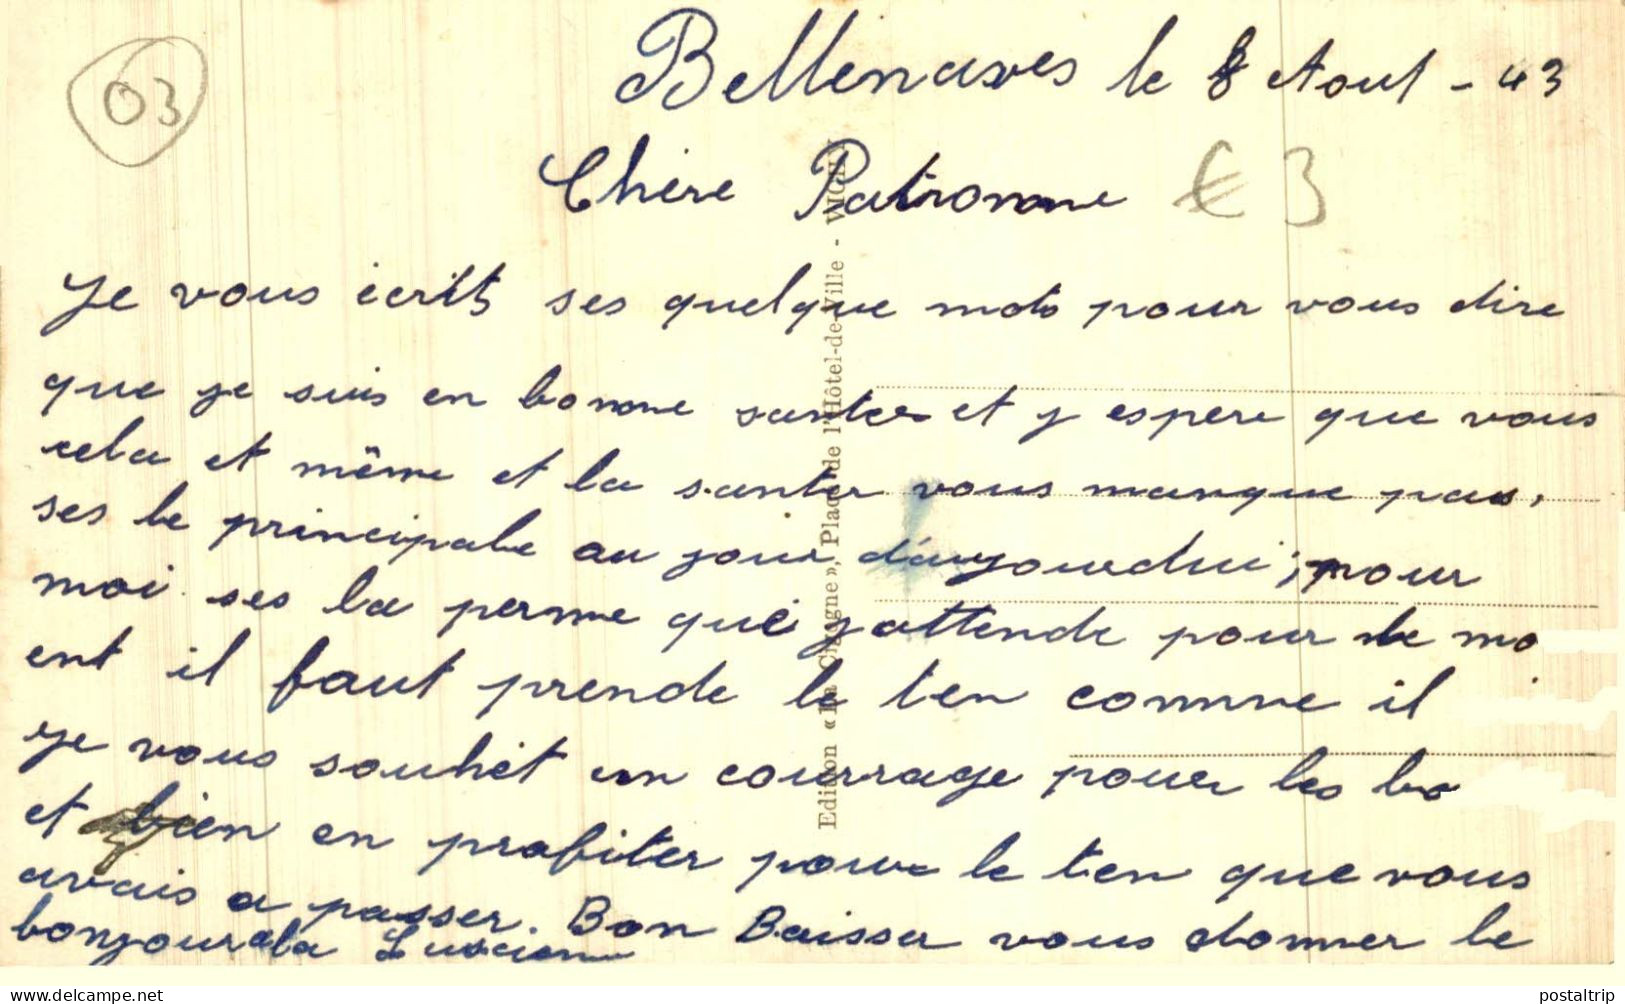 03
Bellenaves le 8 Aout - 43
Chère Patronne € 3
Je vous ecrits ses quelque mots pour vous dire
que je suis en bonne santer et j espere que vous
cela et même et la santer vous manque pas,
ses le principale au jour d'aujourdhui; pour
moi ses la perme que j attende pour le mo
ent il faut prende le ten comme il
je vous souhet un courrage pour les
et bien en profiter pour le ten que vous
avais a passer. Bon Baisser vous donner le
bonjour a la Luscienne
Edition « La Cigogne », Place de l'Hôtel-de-Ville -
postaltrip